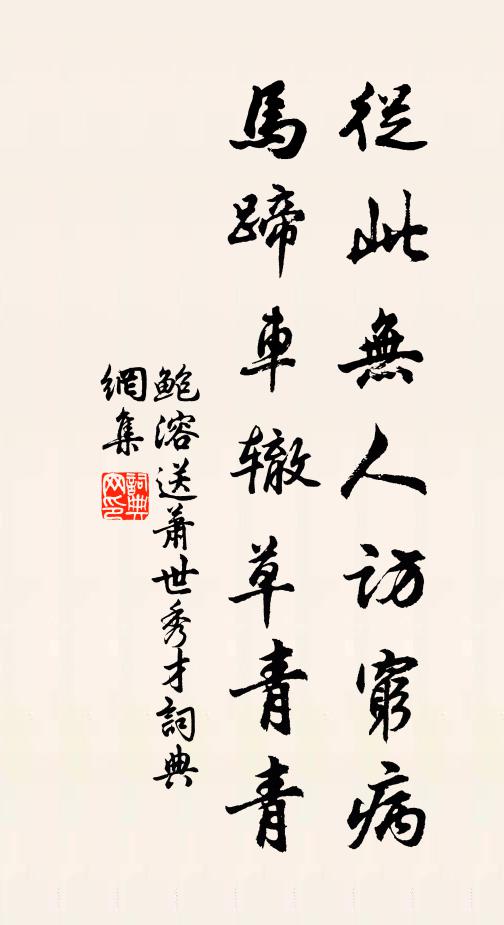 從此無人訪窮病
馬蹄車辙草青青
鮑溶送蕭世秀才詞典
網集
詞典
网印